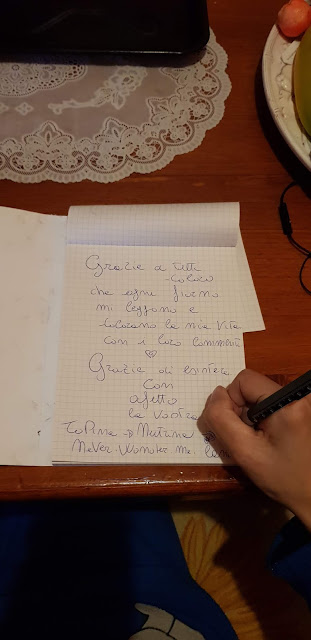 Grazie a tutti
coloro
che ogni giorno
mi leggono e
colorano la mia vita
con i loro commenti
Grazie di esistere
con
affetto
la vostra